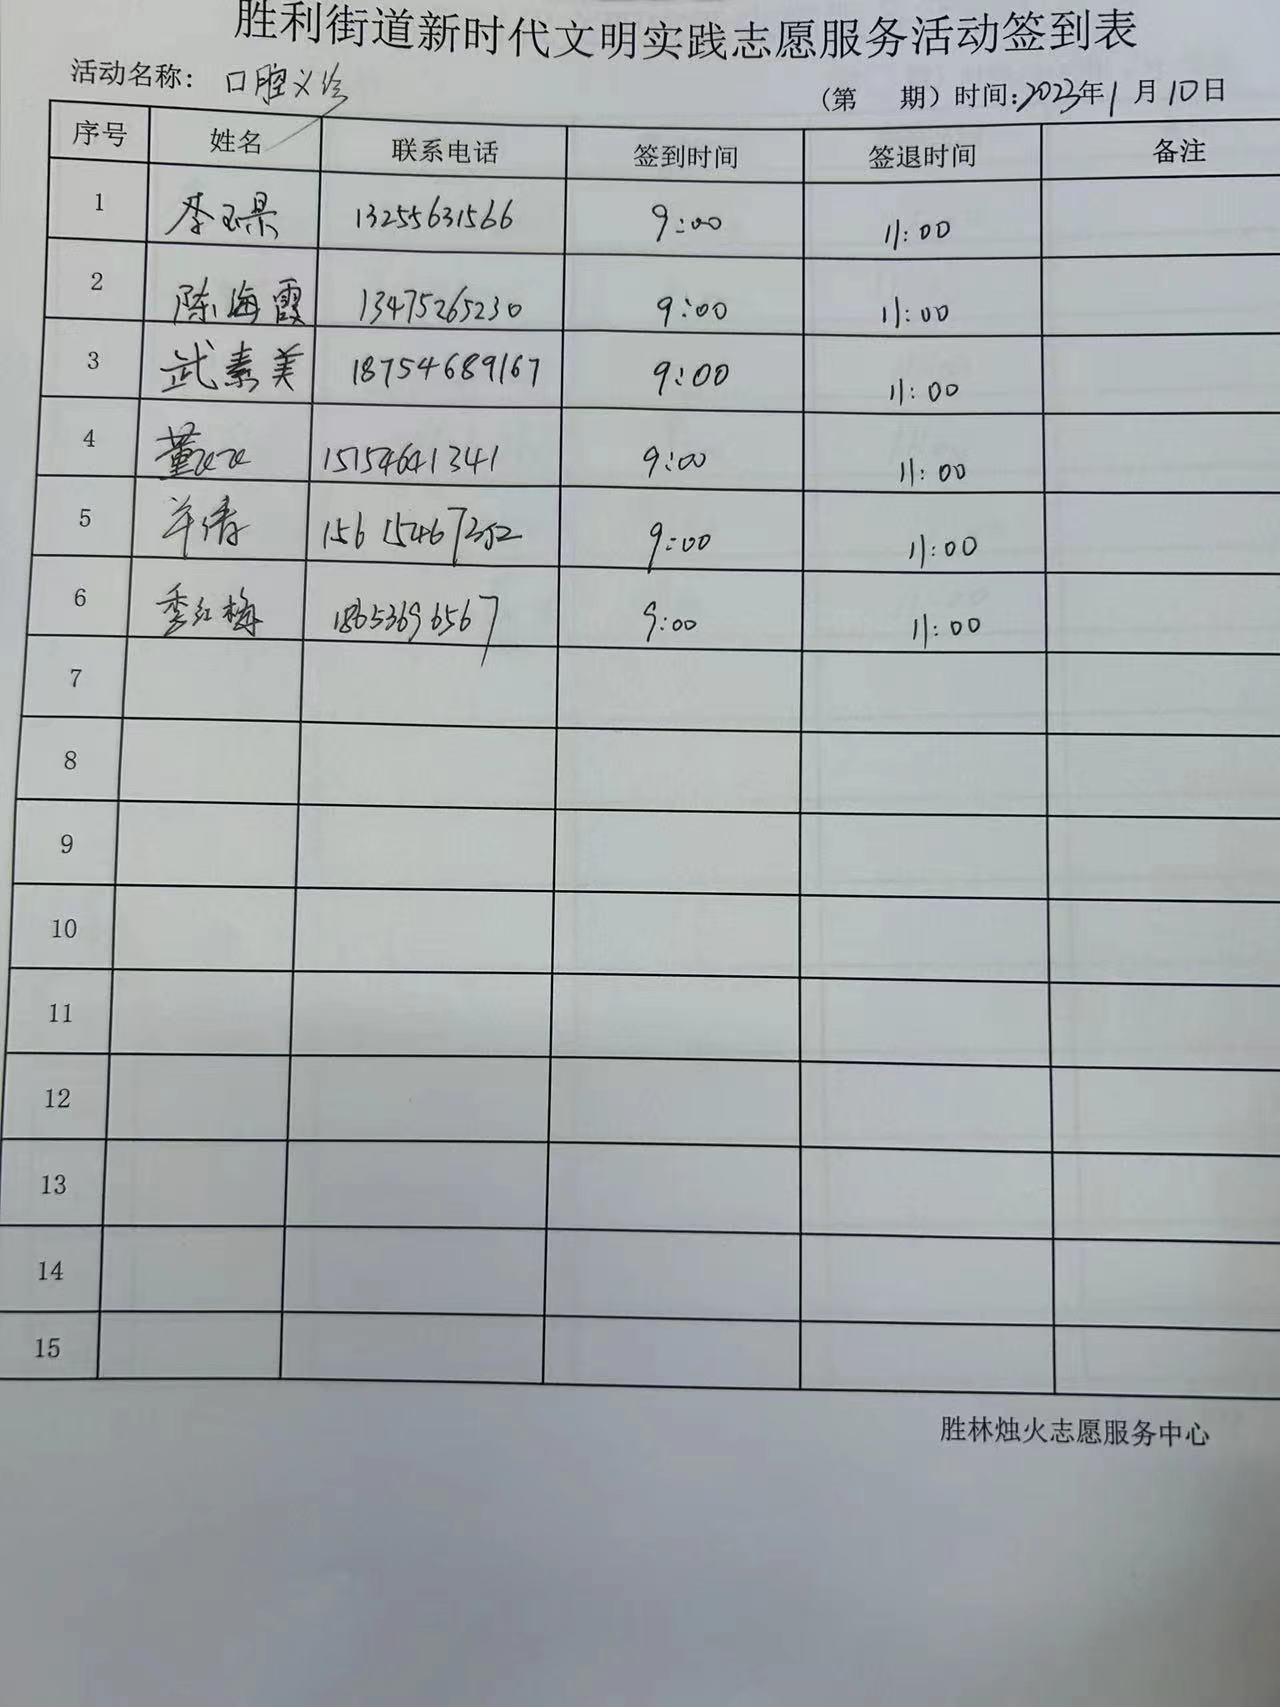 胜利街道新时代文明实践志愿服务活动签到表
活动名称：口腔义诊
（第 期）时间：2023年1月10日
序号 姓名 联系电话 签到时间 签退时间 备注
1 李玉果 13255631566 9:00 11:00
2 陈海霞 13475265230 9:00 11:00
3 武素美 18754689167 9:00 11:00
4 董 15154641341 9:00 11:00
5 倩 15615467252 9:00 11:00
6 季红梅 18653696567 9:00 11:00
7
8
9
10
11
12
13
14
15
胜林烛火志愿服务中心